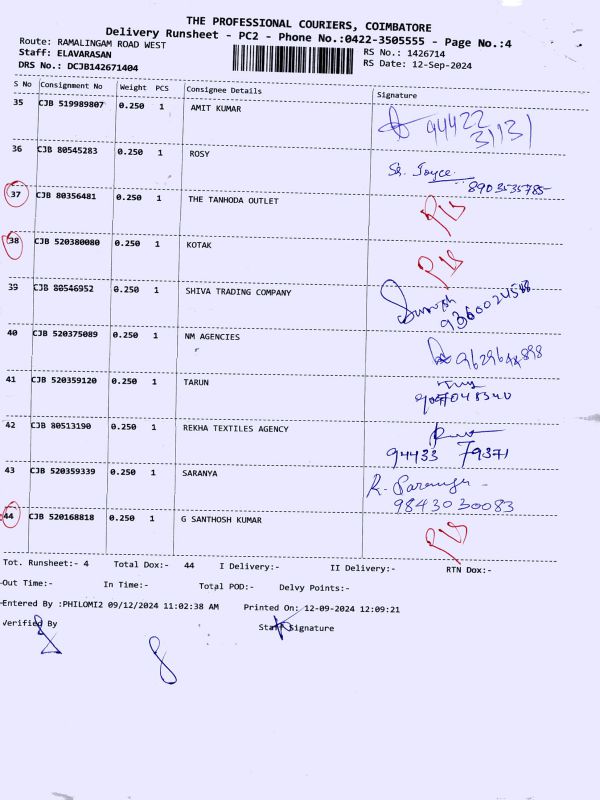 THE PROFESSIONAL COURIERS, COIMBATORE
Delivery Runsheet - PC2 - Phone No.:0422-3505555 - Page No.:4
Route: RAMALINGAM ROAD WEST RS No.: 1426714
Staff: ELAVARASAN RS Date: 12-Sep-2024
DRS No.: DCJB142671404
S No Consignment No Weight PCS Consignee Details Signature
35 CJB 519989807 0.250 1 AMIT KUMAR 94422
31131
36 CJB 80545283 0.250 1 ROSY Sr. Joyce
8903535785
37 CJB 80356481 0.250 1 THE TANHODA OUTLET
38 CJB 520380080 0.250 1 KOTAK
39 CJB 80546952 0.250 1 SHIVA TRADING COMPANY
40 CJB 520375089 0.250 1 NM AGENCIES
41 CJB 520359120 0.250 1 TARUN
42 CJB 80513190 0.250 1 REKHA TEXTILES AGENCY
94433 79371
43 CJB 520359339 0.250 1 SARANYA
9843030083
44 CJB 520168818 0.250 1 G SANTHOSH KUMAR
Tot. Runsheet:- 4 Total Dox:- 44 I Delivery:- II Delivery:- RTN Dox:-
Out Time:- In Time:- Total POD:- Delvy Points:-
Entered By :PHILOMI2 09/12/2024 11:02:38 AM Printed On: 12-09-2024 12:09:21
Verified By Staff Signature